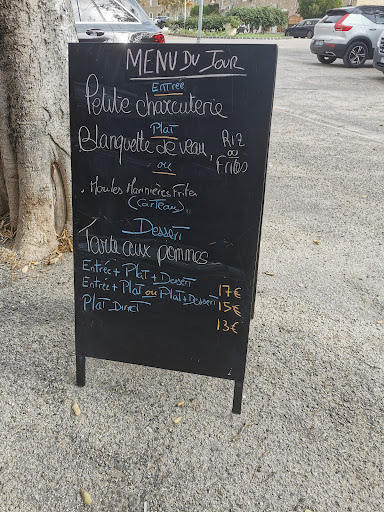 MENU DU JOUR
Entrée
Petite charcuterie
Plat
Blanquette de veau, Riz ou Frites
ou
. Moules Marinières Frites
Dessert
Tarte aux pommes
Entrée + Plat + Dessert 17€
Entrée + Plat ou Plat + Dessert 15€
Plat Direct 13€